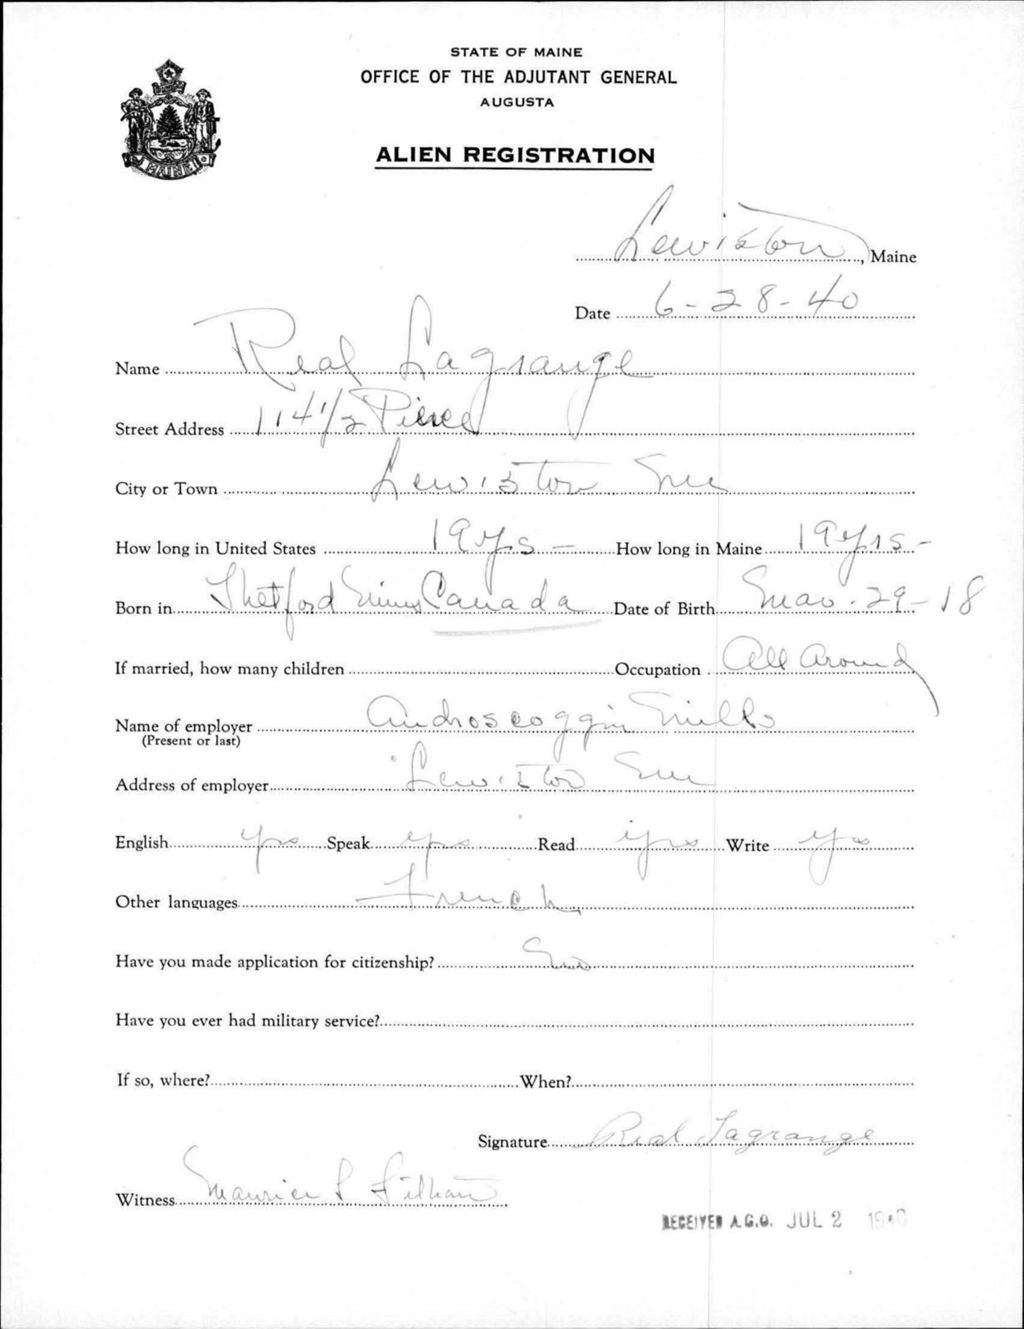 STATE OF MAINE
OFFICE OF THE ADJUTANT GENERAL
AUGUSTA
ALIEN REGISTRATION
MAINE
Lewiston, Maine
Date 6-28-40
Name Real Lagrange
Street Address 114 1/2 Pierce
City or Town Lewiston Me
How long in United States 19 yrs - How long in Maine 19 yrs -
Born in Thetford Mines Canada Date of Birth Mar. 29-18
If married, how many children Occupation All Around
Name of employer Androscoggin Mills
(Present or last)
Address of employer Lewiston Me
English yes Speak yes Read yes Write yes
Other languages French
Have you made application for citizenship? No
Have you ever had military service?
If so, where? When?
Signature Real Lagrange
Witness Maurice L
RECEIVED A.G.O. JUL 2 1940